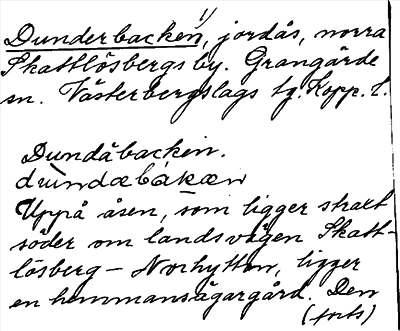 Dunderbacken, jordås, norra
Skattlösbergs by. Grangärde
sn. Västerbergslags tg. Kopp. l.
Dundäbacken.
dùndæbàkæn
Uppå åsen, som ligger strax
söder om landsvägen Skatt-
lösberg – Norhyttan, ligger
en hemmansägargård. Den
(forts)